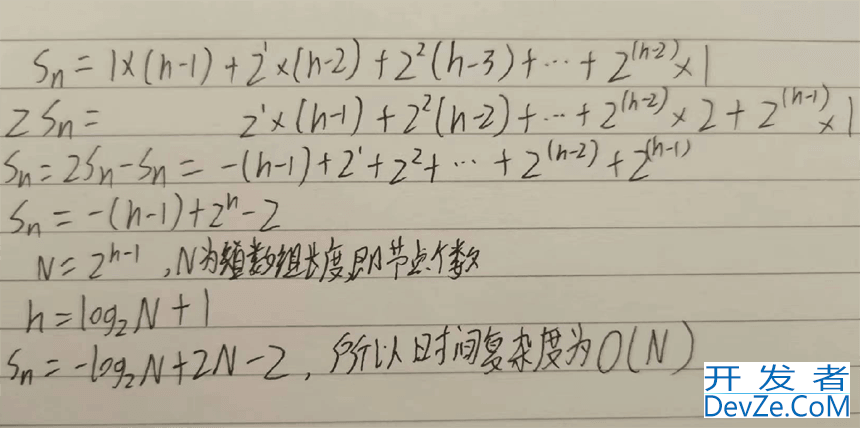 Sn = 1×(h-1) + 2¹×(h-2) + 2²(h-3) + ⋯ + 2^(h-2)×1
2Sn = 2¹×(h-1) + 2²(h-2) + ⋯ + 2^(h-2)×2 + 2^(h-1)×1
Sn = 2Sn - Sn = -(h-1) + 2¹ + 2² + ⋯ + 2^(h-2) + 2^(h-1)
Sn = -(h-1) + 2^h - 2
N = 2^(h-1) , N为数组长度,即节点个数
h = log₂N + 1
Sn = -log₂N + 2N - 2 , 所以时间复杂度为O(N)
开发者
DevZe.CoM